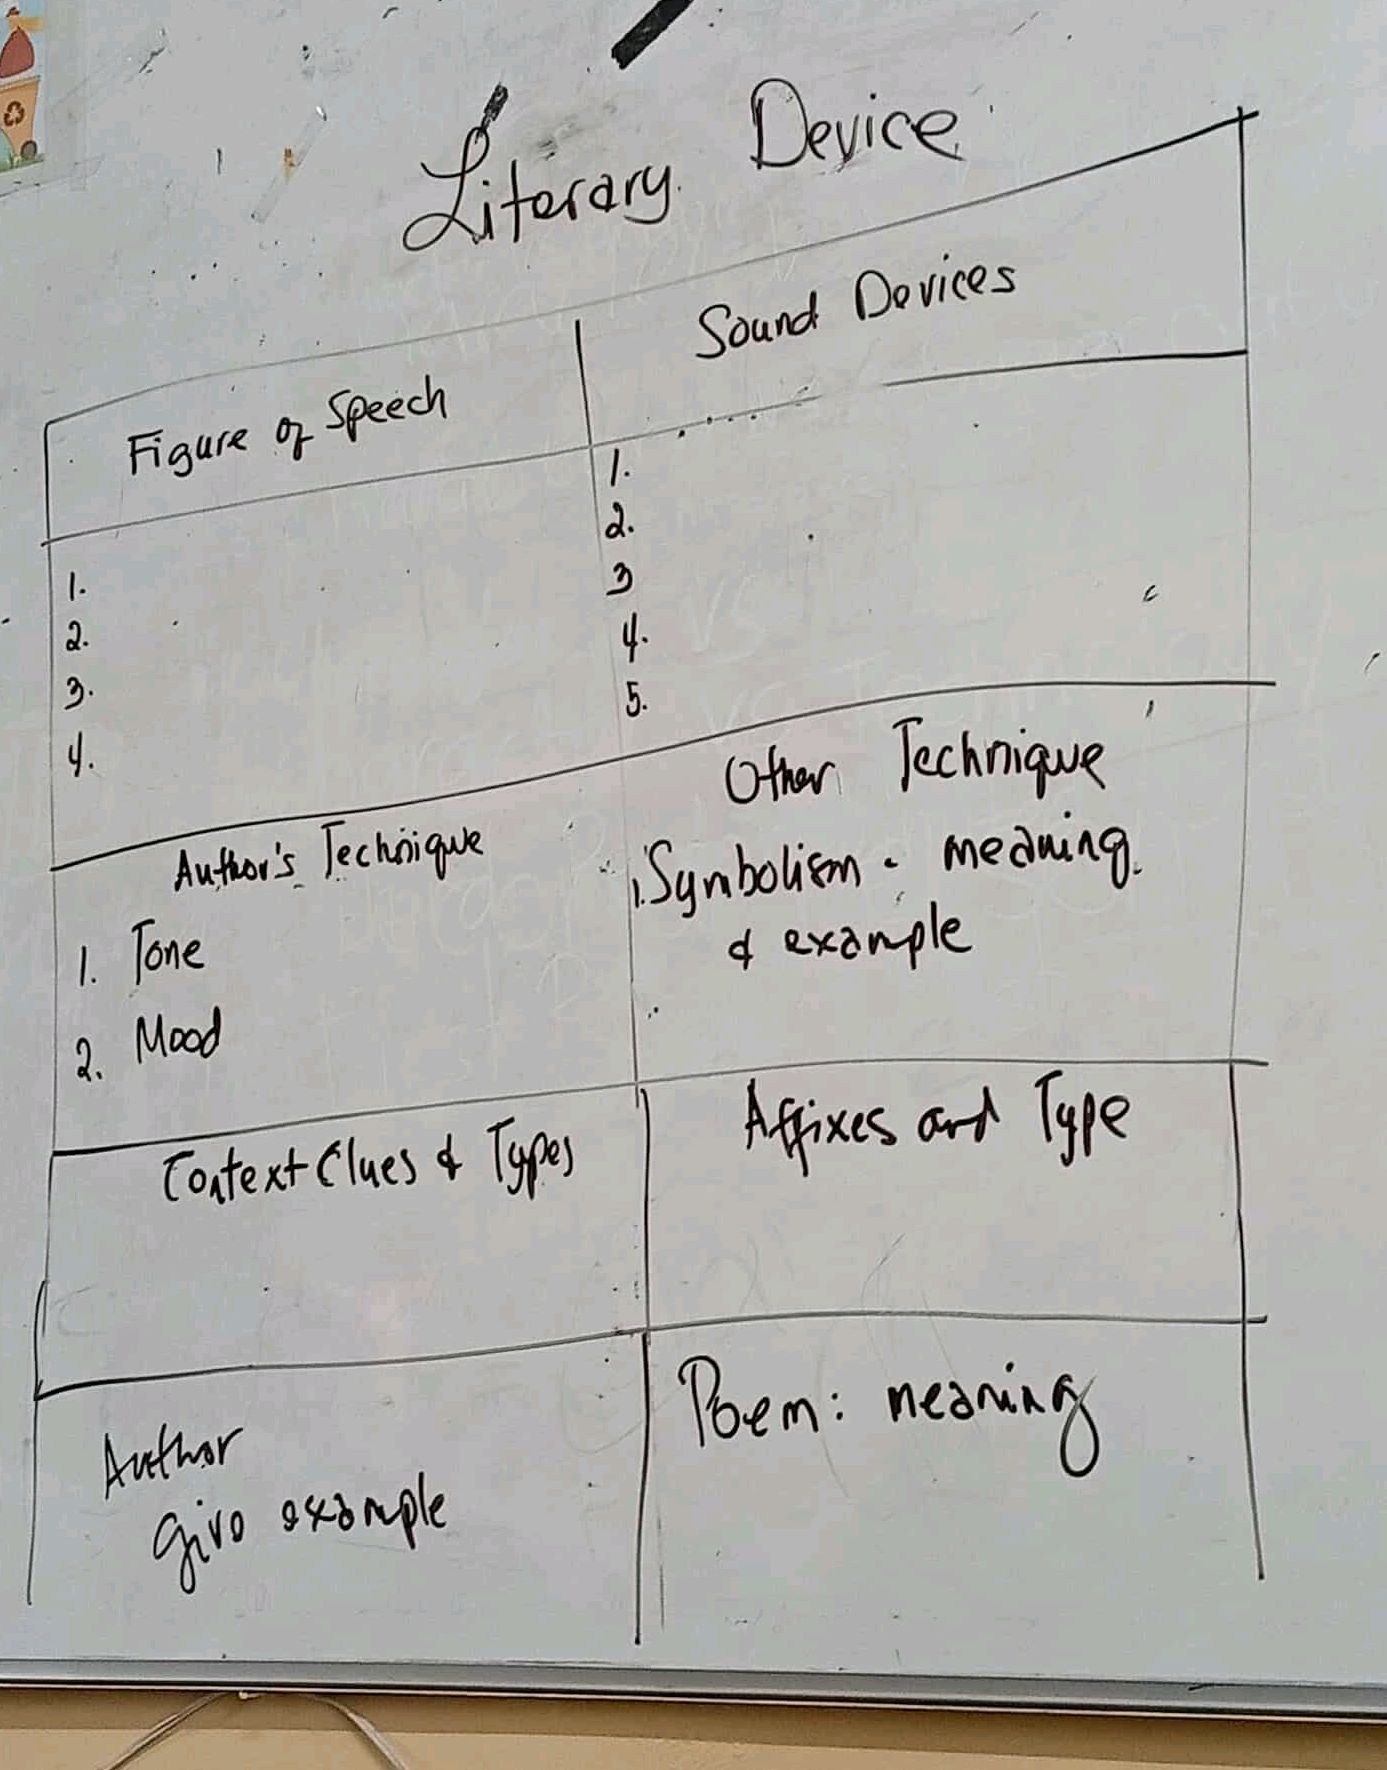 Literary Device
Figure of Speech
1.
2.
3.
4.
Sound Devices
1.
2.
3
4.
5.
Author's Technique
1. Tone
2. Mood
Other Technique
1. Symbolism - meaning
& example
Context Clues & Types
Affixes and Type
Author
give example
Poem: meaning